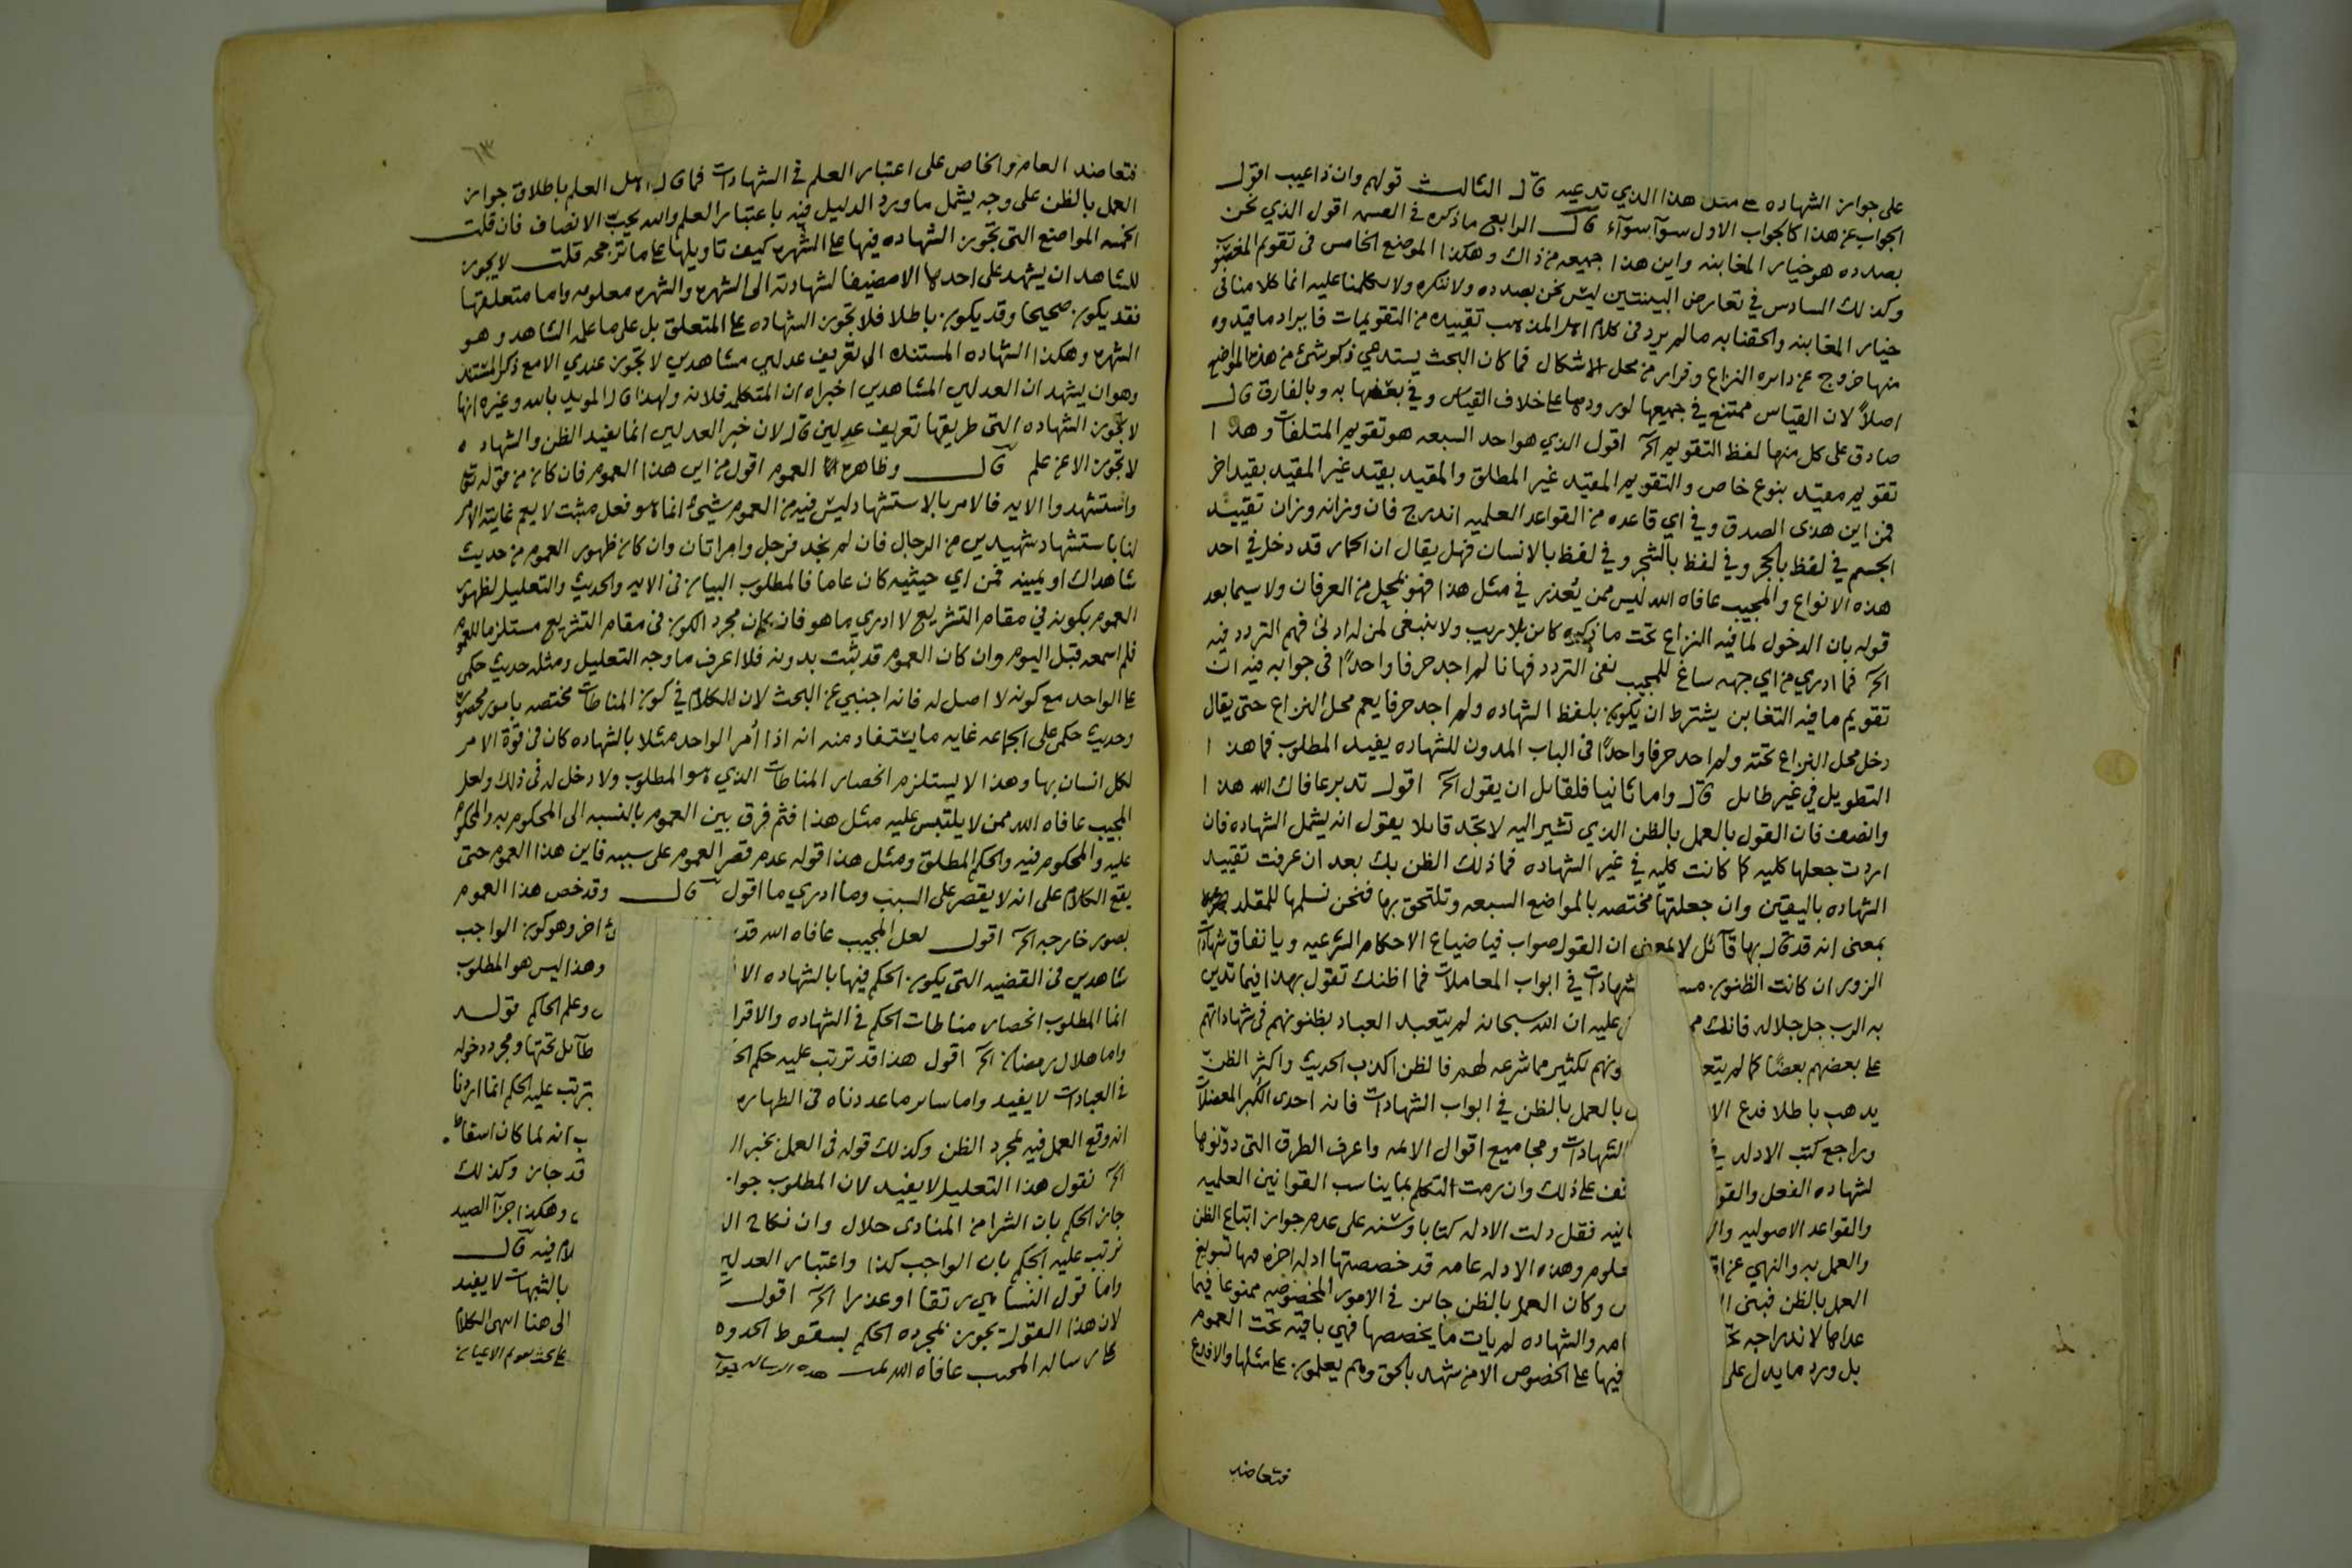 على جواز الشهاده على مثل هذا الذي تدعيه قال الثالث قولهم وان ذا عيب اقول
الجواب عن هذا كالجواب الاول سوآ سوآء قال الرابع ما ذكره في القسمه اقول الذي نحن
بصدده هو خيار المغابنه واين هذا جميعه من ذاك وهكذا الموضع الخامس في تقويم المغصوب
وكذلك السادس في تعارض البينتين ليس نحن بصدده ولا ننكره ولا كلامنا عليه انما كلامنا في
خيار المغابنه والحقنا به ما لم يرد في كلام اهل المذهب تقييده من التقويمات فايراد ما قيدوه
منها خروج عن دايره النزاع وفرار من محل الاشكال فما كان البحث يستدعي ذكر شئ من هذه المواضع
اصلاً لان القياس ممتنع في جميعها لورودها على خلاف القياس وفي بعضها به وبالفارق قال
صادق على كل منها لفظ التقويم الخ اقول الذي هو احد السبعه هو تقويم المتلفات وهذا
تقويم مقيد بنوع خاص والتقويم المقيد غير المطلق والمقيد بقيد غير المقيد بقيد اخر
فمن اين هذى الصدق وفي اي قاعده من القواعد العلميه اندرج فان وزانه وزان تقييد
الجسم في لفظ بالحجر وفي لفظ بالشجر وفي لفظ بالانسان فهل يقال ان الحمار قد دخل في احد
هذه الانواع والمجيب عافاه الله ليس ممن يُعذر في مثل هذا فهو بمحل من العرفان ولا سيما بعد
قوله بان الدخول لما فيه النزاع تحت ما ذكره كاين بلا ريب ولا ينبغي لمن له ادنى فهم التردد فيه
الخ فما ادري من اي جهه ساغ للمجيب نفي التردد فها نا لم اجد حرفا واحدًا في جوابه فيه ان
تقويم ما فيه التغابن يشترط ان يكون بلفظ الشهاده ولم اجد حرفا يعم محل النزاع حتى يقال
دخل محل النزاع تحته ولم اجد حرفا واحدًا في الباب المدون للشهاده يفيد المطلوب فما هذا
التطويل في غير طايل قال واما ثانيا فلقايل ان يقول الخ اقول تدبر عافاك الله هذا
وانصف فان القول بالعمل بالظن الذي تشير اليه لا تجد قايلا يقول انه يشمل الشهاده فان
اردت جعلها كليه كما كانت كليه في غير الشهاده فما ذلك الظن بك بعد ان عرفت تقييد
الشهاده باليقين وان جعلتها مختصه بالمواضع السبعه وتلتحق بها فنحن نسلمها للمقلد
بمعنى انه قد قال بها قآئل لا بمعنى ان القول صواب فيا ضياع الاحكام الشرعيه ويا نفاق شهادات
الزور ان كانت الظنون شهادات في ابواب المعاملات فما اظنك تقول بهذا فيما تدين
به الرب جل جلاله فانك عليه ان الله سبحانه لم يتعبد العباد بظنونهم في شهاداتهم
على بعضهم بعضًا كما لم يتعـ ـونهم لكثير مما شرعه لهم فالظن اكذب الحديث واكثر الظن
يذهب باطلا فدع الا بالعمل بالظن في ابواب الشهادات فانه احدى الكبر المعضلات
وراجع كتب الادله في الشهادات ومجاميع اقوال الايمه واعرف الطرق التي دونوها
لشهاده الفعل والقو ـقف على ذلك وان رمت التكلم بما يناسب القوانين العلميه
والقواعد الاصوليه والـ ـانيه فقل دلت الادله كتابا وسنه على عدم جواز اتباع الظن
والعمل به والنهي عن اتـ ـعلوم وهذه الادله عامه قد خصصتها ادله اخره فيها تسويغ
العمل بالظن فبنى ا وكان العمل بالظن جايز في الامور المخصوصه ممنوعا فيما
عداها لاندراجه تحـ ـامه والشهاده لم يات ما يخصصها فهي باقيه تحت العموم
بل ورد ما يدل على فيها على الخصوص الا من شهد بالحق وهم يعلمون على مثلها والا فدع
فتعاضد
٦٣
فتعاضد العام والخاص على اعتبار العلم في الشهادات فما قال اهل العلم باطلاق جواز
العمل بالظن على وجه يشمل ما ورد الدليل فيه باعتبار العلم والله يحب الانصاف فان قلت
الخمسه المواضع التي تجوز الشهاده فيها على الشهره كيف تاويلها على ما ترجحه قلت لا يجوز
للشاهد ان يشهد على احدها الا مضيفا لشهادته الى الشهره والشهره معلومه واما متعلقها
فقد يكون صحيحا وقد يكون باطلا فلا تجوز الشهاده على المتعلق بل على ما علمه الشاهد وهو
الشهره وهكذا الشهاده المستنده الى تعريف عدلين مشاهدين لا تجوز عندي الا مع ذكر المستند
وهو ان يشهد ان العدلين المشاهدين اخبراه ان المتكلمه فلانه ولهذا قال المويد بالله وغيره انها
لا تجوز الشهاده التي طريقها تعريف عدلين قال لان خبر العدلين انما يفيد الظن والشهاده
لا تجوز الا عن علم قال وظاهره العموم اقول من اين هذا العموم فان كان من قوله تعالى
واستشهدوا الايه فالامر بالاستشهاد ليس فيه من العموم شيئ انما هو فعل مثبت لا يعم غايته الامر
لنا باستشهاد شهيدين من الرجال فان لم نجد فرجل وامراتان وان كان ظهور العموم من حديث
شاهداك او يمينه فمن اي حيثيه كان عاما فالمطلوب البيان في الايه والحديث والتعليل لظهور
العموم بكونه في مقام التشريع لا ادري ما هو فان كان مجرد الكون في مقام التشريع مستلزما للعموم
فلم اسمعه قبل اليوم وان كان العموم قد ثبت بدونه فلا اعرف ما وجه التعليل ومثله حديث حكمي
على الواحد مع كونه لا اصل له فانه اجنبي عن البحث لان الكلام في كون المناطات مختصه بامور مخصوصه
وحديث حكمي على الجماعه غايه ما يستفاد منه انه اذا أمر الواحد مثلا بالشهاده كان في قوة الامر
لكل انسان بها وهذا لا يستلزم انحصار المناطات الذي هو المطلوب ولا دخل له في ذلك ولعل
المجيب عافاه الله ممن لا يلتبس عليه مثل هذا فثم فرق بين العموم بالنسبه الى المحكوم به والمحكوم
عليه والمحكوم فيه والحكم المطلق ومثل هذا قوله عدم قصر العموم على سببه فاين هذا العموم حتى
يقع الكلام على انه لا يقصر على السبب وما ادري ما اقول قال وقد خص هذا العموم
بصور خارجه الخ اقول لعل المجيب عافاه الله قد ئ اخر وهو كون الواجب
شاهدين في القضيه التي يكون الحكم فيها بالشهاده الا وهذا ليس هو المطلوب
انما المطلوب انحصار مناطات الحكم في الشهاده والاقرا وعلم الحاكم قوله
واما هلال رمضان الخ اقول هذا قد ترتب عليه حكم الخ طآئل تحتها ومجرد دخوله
في العبادات لا يفيد واما ساير ما عددناه في الطهاره يترتب عليه الحكم انما اردنا
انه وقع العمل فيه بمجرد الظن وكذلك قوله في العمل بخبر الـ انه لما كان اسقاط
الخ نقول هذا التعليل لا يفيد لان المطلوب جوا قد جاز وكذلك
جاز الحكم بان الشرا من المنادى حلال وان نكاح ال وهكذا جزآ الصيد
ترتب عليه الحكم بان الواجب كذا واعتبار العدلين لام فيه قال
واما قول النسآ هي رتقا او عذرا الخ اقول بالشبهات لا يفيد
لان هذا القول يجوز بمجرده الحكم بسقوط الحدوه الى هنا انتهى الكلام
على رساله المجيب عافاه الله تمت هذه الرساله